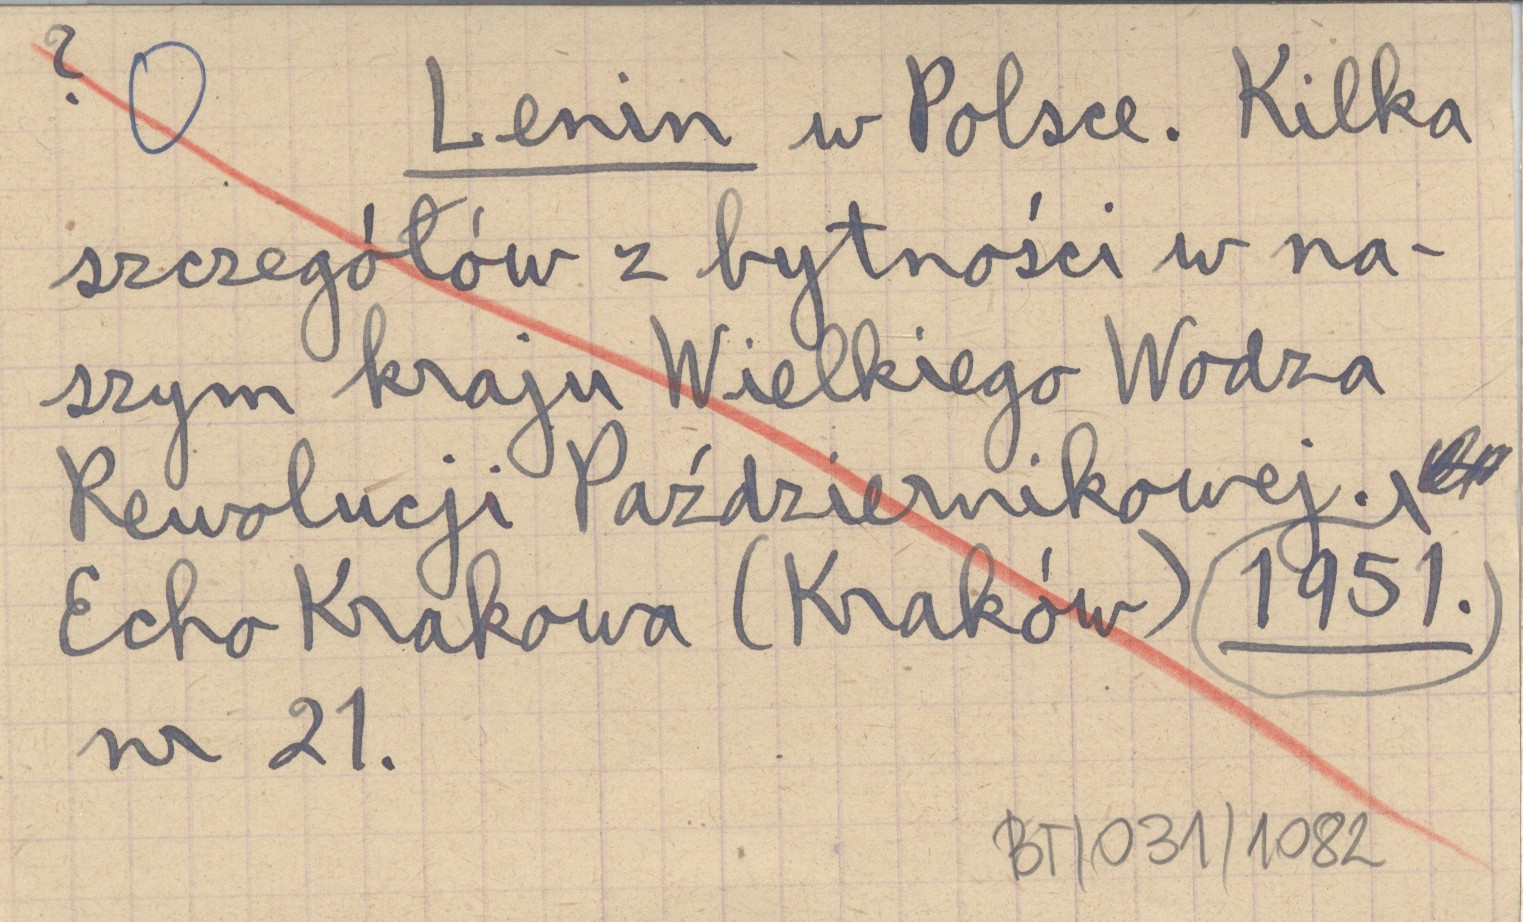 ?
Lenin w Polsce. Kilka
szczegółów z bytności w na-
szym kraju Wielkiego Wodza
Rewolucji Październikowej.
Echo Krakowa (Kraków) 1951.
nr 21.
BT/031/1082